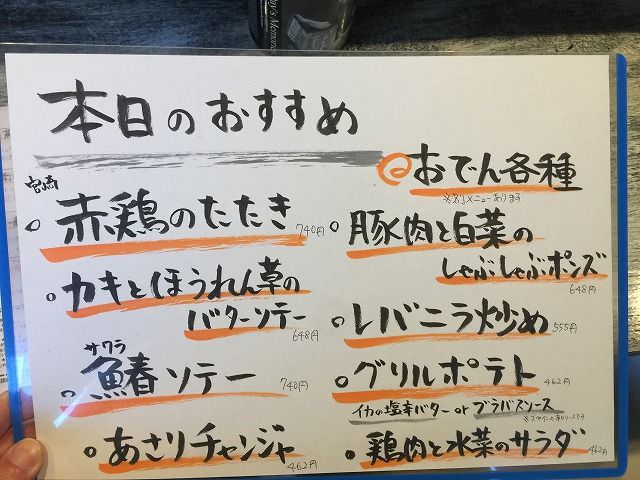 本日のおすすめ
宮崎
赤鶏のたたき 740円
カキとほうれん草の
バターソテー 648円
サワラ
鰆ソテー 740円
あさりチャンジャ 462円
おでん各種
※別メニューあります
豚肉と白菜の
しゃぶしゃぶポンズ 648円
レバニラ炒め 555円
グリルポテト 462円
イカの塩辛バター or ブラバスソース
鶏肉と水菜のサラダ 462円